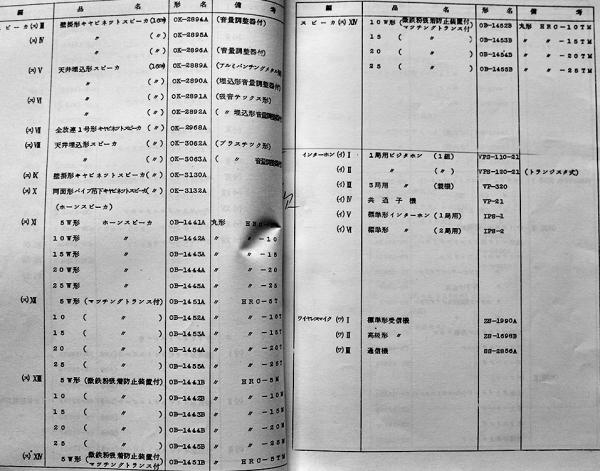 図 品 名 形 名 備 考
スピーカ(ス)Ⅲ 壁掛形キャビネットスピーカ(16㎝) OK-2894A (音量調整器付)
(ス)Ⅳ 〃 (〃) OK-2895A (〃)
〃 (〃) OK-2896A (音量調整器付)
(ス)Ⅴ 天井埋込形スピーカ (16㎝) OK-2889A (アルミパンチングメタル形)
〃 (〃) OK-2890A (埋込形音量調整器付)
(ス)Ⅵ 〃 (〃) OK-2891A (吸音テックス形)
〃 (〃) OK-2892A (〃 埋込形音量調整器付)
(ス)Ⅶ 全放連1号形キャビネットスピーカ (〃) OK-2968A
(ス)Ⅷ 天井埋込形スピーカ (〃) OK-3062A (プラスチック形)
〃 (〃) OK-3063A (〃 音量調整器付)
(ス)Ⅸ 壁掛形キャビネットスピーカ (〃) OK-3130A
(ス)Ⅹ 両面形パイプ吊下キャビネットスピーカ(〃) OK-3132A
(ホーンスピーカ)
(ス)Ⅺ 5W形 ホーンスピーカ OB-1441A 丸形
10W形 〃 OB-1442A 〃 〃-10
15W形 〃 OB-1443A 〃 〃-15
20W形 〃 OB-1444A 〃 〃-20
25W形 〃 OB-1445A 〃 〃-25
(ス)Ⅻ 5W形(マッチングトランス付) OB-1451A 〃 HRC-5T
10 (〃) OB-1452A 〃 〃-10T
15 (〃) OB-1453A 〃 〃-15T
20 (〃) OB-1454A 〃 〃-20T
25 (〃) OB-1455A 〃 〃-25T
(ス)XIII 5W形(微鉄粉吸着防止装置付) OB-1441B 〃 HRC-5M
10 (〃) OB-1442B 〃 〃-10M
15 (〃) OB-1443B 〃 〃-15M
20 (〃) OB-1444B 〃 〃-20M
25 (〃) OB-1445B 〃 〃-25M
(ス)XIV 5W形(微鉄粉吸着防止装置付 マッチングトランス付) OB-1451B 〃 HRC-5TM
図 品 名 形 名 備 考
スピーカ(ス)XIV 10W形(微鉄粉吸着防止装置付 マッチングトランス付) OB-1452B 丸形 HRC-10TM
15 (〃) OB-1453B 〃 〃-15TM
20 (〃) OB-1454B 〃 〃-20TM
25 (〃) OB-1455B 〃 〃-25TM
インターホン(イ)Ⅰ 1局用ビジタホン (1組) VPS-110-21
(イ)Ⅱ 〃 (〃) VPS-120-21 (トランジスタ式)
(イ)Ⅲ 3局用 〃 (親機) VP-320
(イ)Ⅳ 共通子機 VP-21
(イ)Ⅴ 標準形インターホン(1局用) IPS-1
(イ)Ⅵ 標準形 〃 (2局用) IPS-2
ワイヤレスマイク(ワ)Ⅰ 標準形受信機 ZS-1990A
(ワ)Ⅱ 高級形 〃 ZS-1698B
(ワ)Ⅲ 送信機 SS-2856A